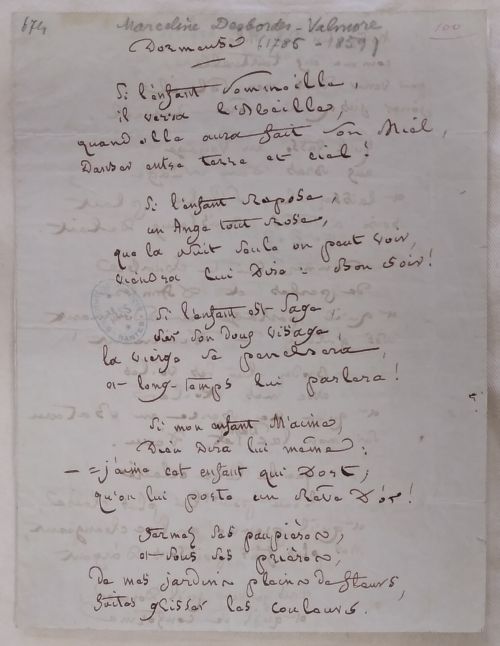 674
Marceline Desbordes-Valmore
100
Dormeuse (1786 - 1859)
Si l'enfant sommeille,
il verra l'Abeille,
quand elle aura fait son Miel,
Danser entre terre et ciel!
Si l'enfant Repose,
un Ange tout Rose,
que la Nuit seule on peut voir,
viendra lui Dire : Bon Soir!
Si l'enfant est Sage,
sur son doux visage,
la vierge se penchera,
et long-temps lui parlera!
Si mon enfant M'aime
Dieu Dira lui même :
— = j'aime cet enfant qui Dort;
qu'on lui porte un Rêve D'or!
Fermez ses paupières,
et sous ses prières,
De mes jardins pleins de fleurs,
faites glisser les couleurs.